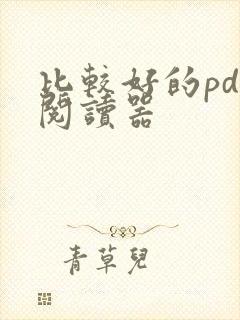 比較好的pd
閱讀器
青草兒